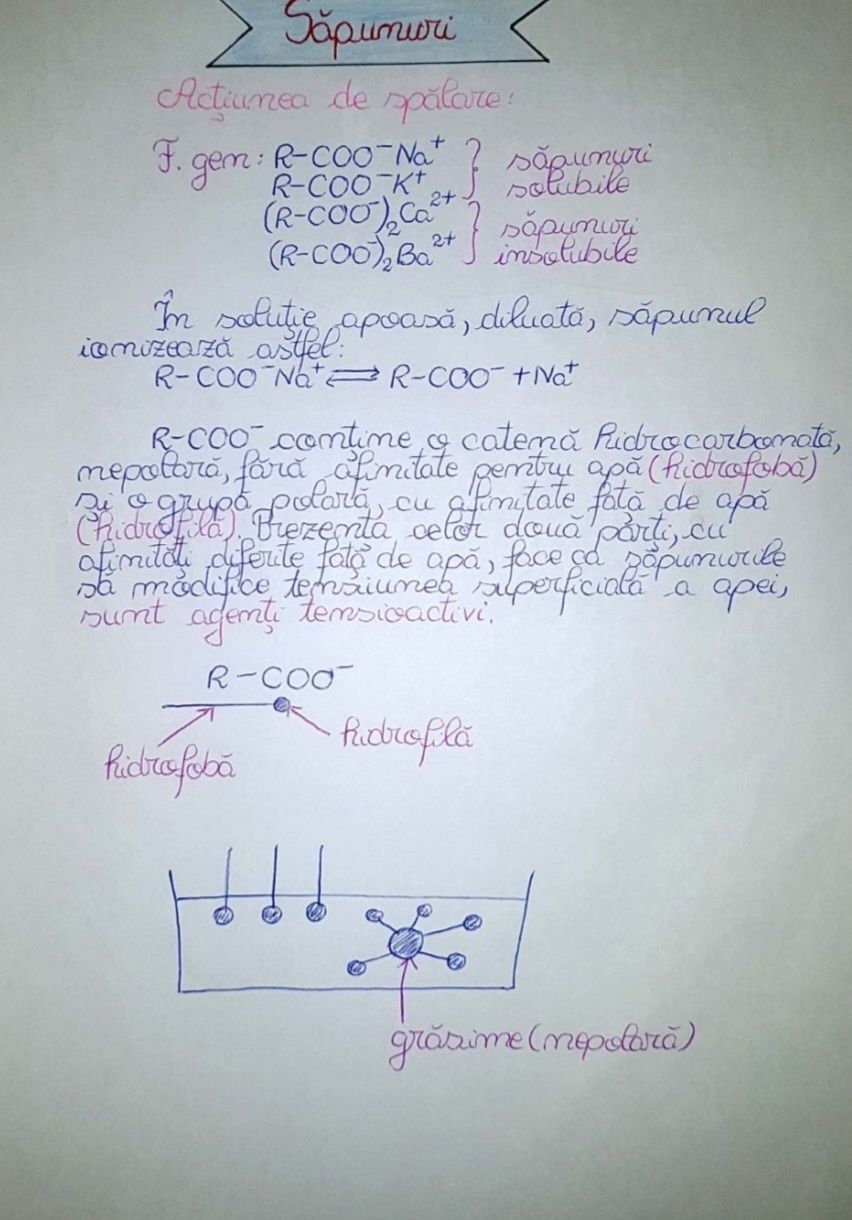 Săpunuri
Acțiunea de spălare:
F. gen: R-COO⁻Na⁺ } săpunuri
R-COO⁻K⁺ solubile
(R-COO⁻)₂Ca²⁺ } săpunuri
(R-COO⁻)₂Ba²⁺ insolubile
În soluție apoasă, diluată, săpunul
ionizează astfel:
R-COO⁻Na⁺ ⇌ R-COO⁻ + Na⁺
R-COO⁻ conține o catenă hidrocarbonată,
nepolară, fără afinitate pentru apă (hidrofobă)
și o grupă polară, cu afinitate față de apă
(hidrofilă). Prezența celor două părți, cu
afinități diferite față de apă, face ca săpunurile
să modifice tensiunea superficială a apei,
sunt agenți tensioactivi.
R-COO⁻
hidrofilă
hidrofobă
grăsime (nepolară)